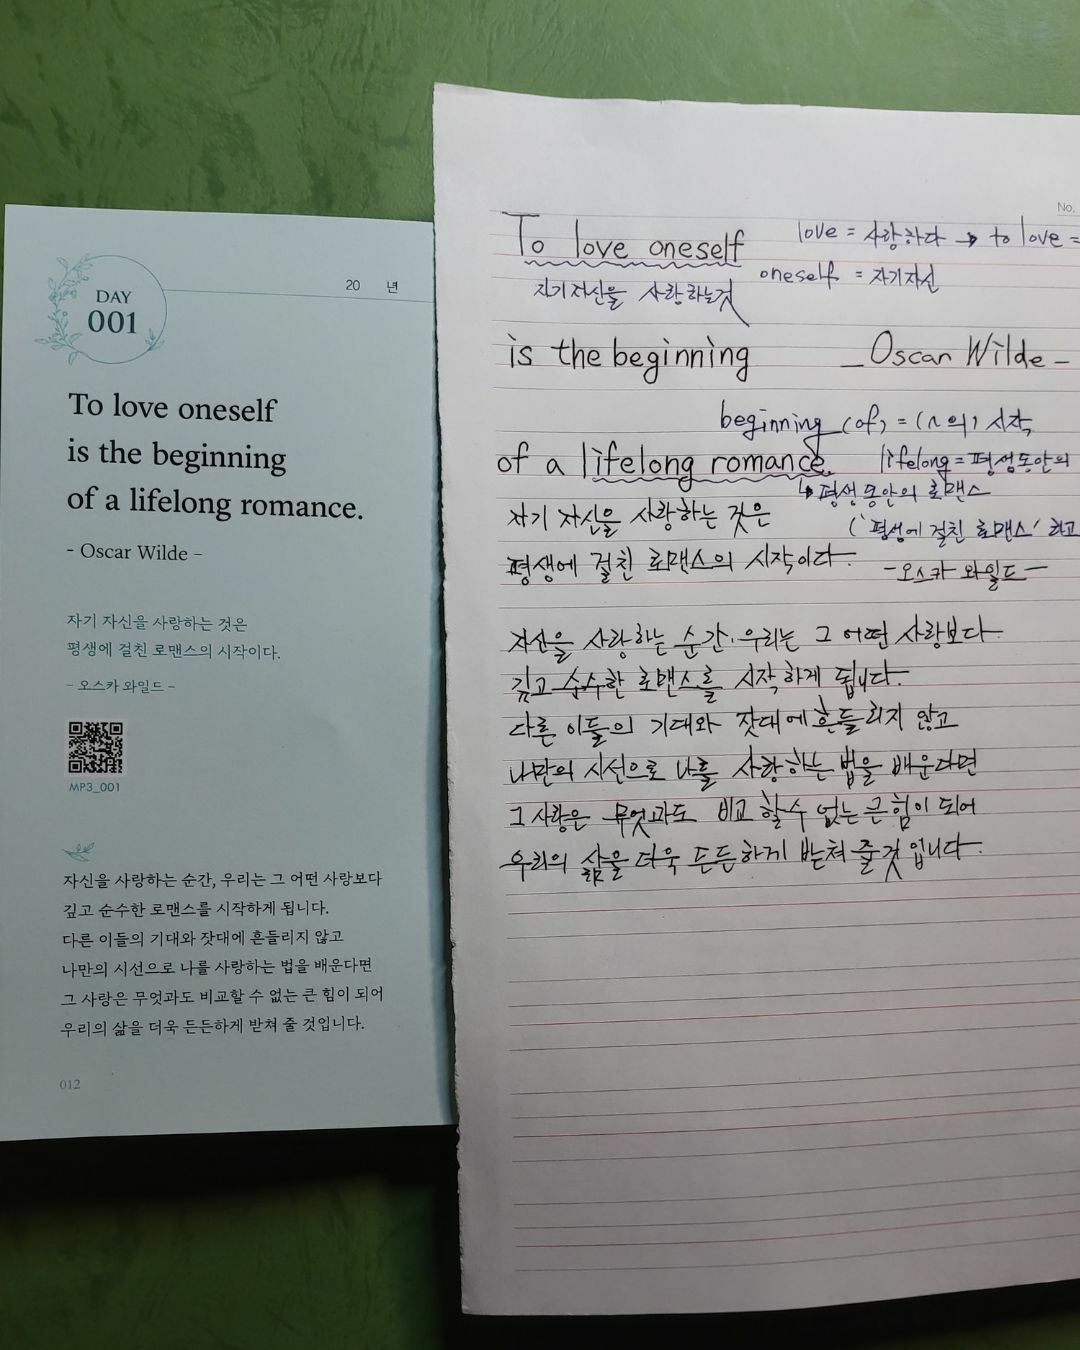 DAY
001
20 년
To love oneself
is the beginning
of a lifelong romance.
- Oscar Wilde -
자기 자신을 사랑하는 것은
평생에 걸친 로맨스의 시작이다.
- 오스카 와일드 -
MP3_001
자신을 사랑하는 순간, 우리는 그 어떤 사랑보다
깊고 순수한 로맨스를 시작하게 됩니다.
다른 이들의 기대와 잣대에 흔들리지 않고
나만의 시선으로 나를 사랑하는 법을 배운다면
그 사랑은 무엇과도 비교할 수 없는 큰 힘이 되어
우리의 삶을 더욱 든든하게 받쳐 줄 것입니다.
012
No.
To love oneself
love = 사랑하다 → to love =
oneself = 자기자신
자기자신을 사랑하는것
is the beginning
- Oscar Wilde -
beginning (of) = (~의) 시작
of a lifelong romance.
lifelong = 평생동안의
↳ 평생동안의 로맨스
('평생에 걸친 로맨스' 라고
자기 자신을 사랑하는 것은
평생에 걸친 로맨스의 시작이다.
- 오스카 와일드 -
자신을 사랑하는 순간, 우리는 그 어떤 사랑보다
깊고 순수한 로맨스를 시작하게 됩니다.
다른 이들의 기대와 잣대에 흔들리지 않고
나만의 시선으로 나를 사랑하는 법을 배운다면
그 사랑은 무엇과도 비교 할 수 없는 큰 힘이 되어
우리의 삶을 더욱 든든하게 받쳐 줄것 입니다.